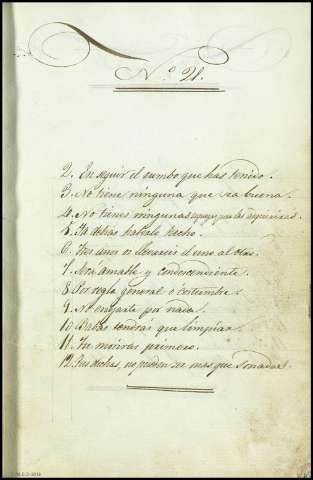 N.º 21.
2. En seguir el rumbo que has tenido.
3. No tiene ninguna que sea buena.
4. No tienes ningunas por las
5. Ya debias haberle hecho.
6. Tres años os llevareis el uno al otro.
7. Será amable y condescendiente.
8. Por regla general ó costumbre.
9. No enojarte por nada.
10. Babas tendrás que limpiar.
11. Tu morirás primero.
12. Tus dichas, no pueden ser mas que soñadas.